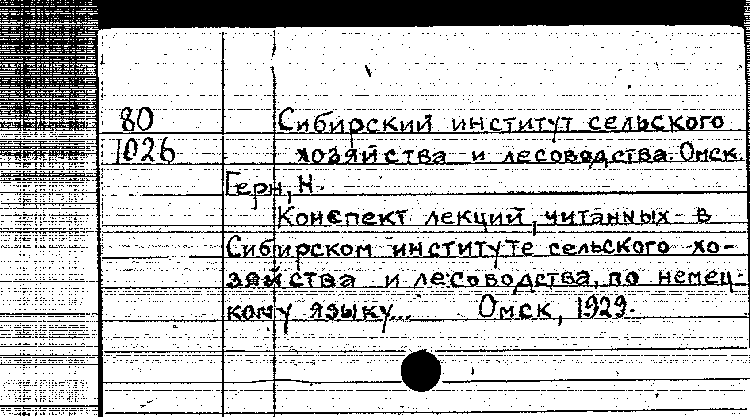 80 Сибирский институт сельского
1026 хозяйства и лесоводства. Омск.
Герн, Н.
Конспект лекций, читанных в
Сибирском институте сельского хо-
зяйства и лесоводства, по немец-
кому языку... Омск, 1929.